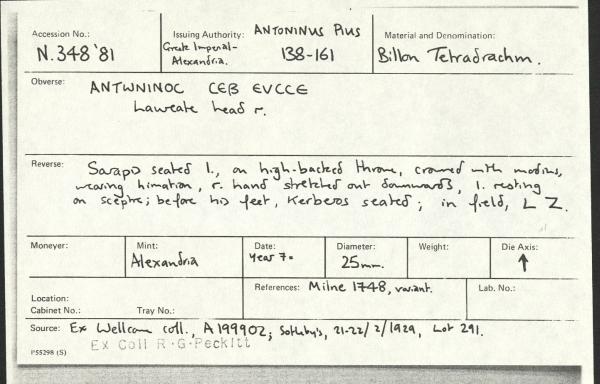 Accession No.: N.348 '81
Issuing Authority: ANTONINUS PIUS
Greek Imperial - Alexandria. 138-161
Material and Denomination: Billon Tetradrachm.
Obverse: ANTWNINOC CEB EVCCE
Laureate head r.
Reverse: Sarapis seated l., on high-backed throne, crowned with modius,
wearing himation, r. hand stretched out downwards, l. resting
on sceptre; before his feet, Kerberos seated; in field, L Z.
Moneyer:
Mint: Alexandria
Date: Year 7.
Diameter: 25mm.
Weight:
Die Axis: ↑
Location:
Cabinet No.: Tray No.:
References: Milne 1748, variant.
Lab. No.:
Source: Ex Wellcome coll., A199902; Sotheby's, 21-22/2/1929, Lot 291.
Ex Coll R.G.Peckitt
P55298 (S)